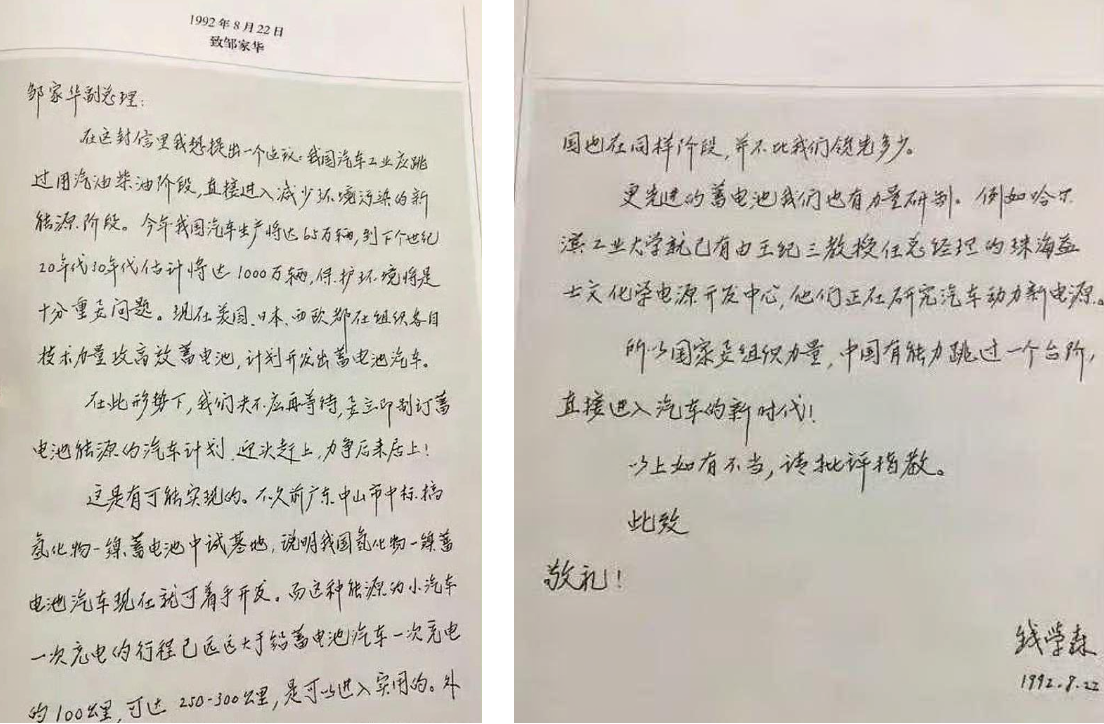 1992年8月22日
致邹家华
邹家华副总理:
在这封信里我想提出一个建议:我国汽车工业应跳
过用汽油柴油阶段,直接进入减少环境污染的新
能源阶段。今年我国汽车生产将达65万辆,到下个世纪
20年代30年代估计将达1000万辆,保护环境将是
十分重要问题。现在美国、日本、西欧都在组织各自
技术力量攻高效蓄电池,计划开发出蓄电池汽车。
在此形势下,我们决不应再等待,要立即制订蓄
电池能源的汽车计划,迎头赶上,力争后来居上!
这是有可能实现的。不久前广东中山市中标搞
氢化物-镍蓄电池中试基地,说明我国氢化物-镍蓄
电池汽车现在就可着手开发。而这种能源的小汽车
一次充电的行程已远远大于铅蓄电池汽车一次充电
的100公里,可达250-300公里,是可以进入实用的。外
国也在同样阶段,并不比我们领先多少。
更先进的蓄电池我们也有力量研制。例如哈尔
滨工业大学就已有由王纪三教授任总经理的珠海益
士文化学电源开发中心,他们正在研究汽车动力新电源。
所以国家要组织力量,中国有能力跳过一个台阶,
直接进入汽车的新时代!
以上如有不当,请批评指教。
此致
敬礼!
钱学森
1992.8.22